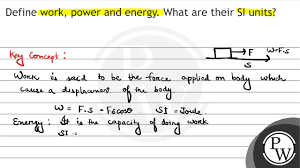 Define work, power and energy. What are their SI units?
Key Concept :
F W=F.S
S
Work is said to be the force applied on body which
cause a displacement of the body.
W = F.S = FScosθ SI = Joule.
Energy: It is the capacity of doing work
SI =
PW